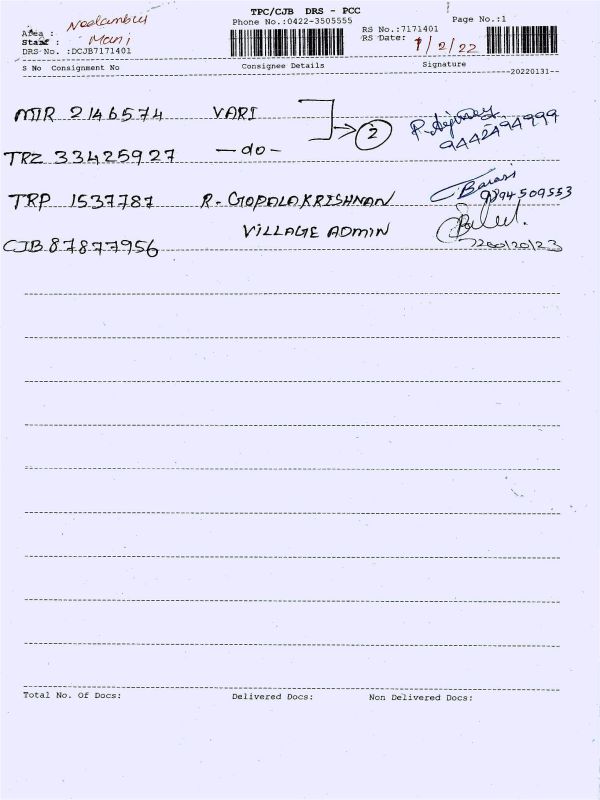 TPC/CJB DRS - PCC
Area : Neelambur Phone No.:0422-3505555 RS No.:7171401 Page No.:1
Staff : Mani RS Date: 1/2/22
DRS No. :DCJB7171401
S No Consignment No Consignee Details Signature
20220131
MTR 2146574 VARI 2
9442494999
TRZ 33425927 -do-
TRP 1537787 R. GOPALAKRISHNAN 9894509553
CJB 87877956 VILLAGE ADMIN
Total No. Of Docs: Delivered Docs: Non Delivered Docs: